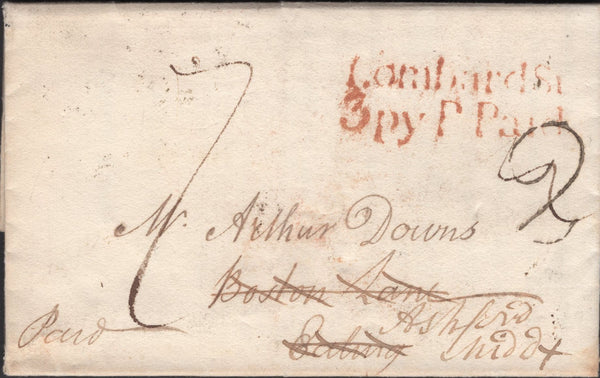 Lombard St
3py P Paid
7
2
Mr. Arthur Downs
Boston Lane
Ashford
Ealing Middx
Paid